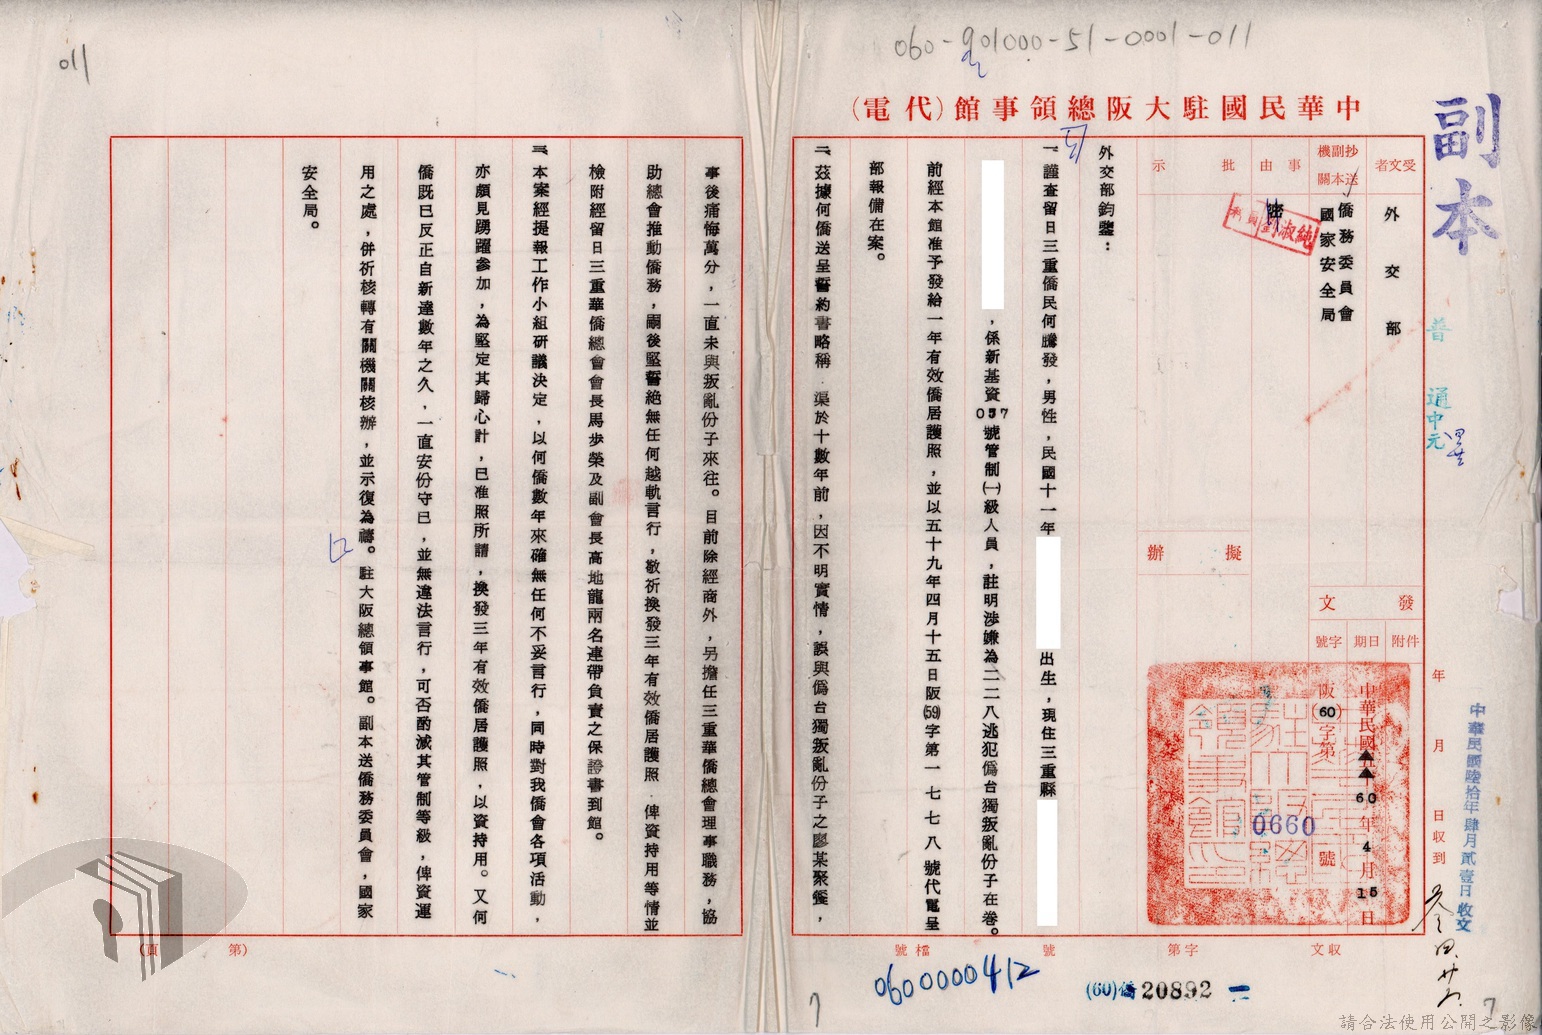 060-901000-51-0001-011
011
副本
中華民國駐大阪總領事館(代電)
受文者
外交部
抄送副本機關
僑務委員會
國家安全局
事由
密
批示
擬辦
發文
附件
日期
字號
中華民國 60年4月15日
阪(60)字第0660號
普通
中華民國陸拾年肆月貳壹日收文
年月日收到
外交部鈞鑒：
一、謹查留日三重僑民何騰發，男性，民國十一年
出生，現住三重縣
，係新基資057號管制㈠級人員，註明涉嫌為二二八逃犯偽台獨叛亂份子在卷。
前經本館准予發給一年有效僑居護照，並以五十九年四月十五日阪(59)字第一七七八號代電呈
部報備在案。
二、茲據何僑送呈誓約書略稱．渠於十數年前，因不明實情，誤與偽台獨叛亂份子之廖某聚餐，
事後痛悔萬分，一直未與叛亂份子來往。目前除經商外，另擔任三重華僑總會理事職務，協
助總會推動僑務，嗣後堅誓絕無任何越軌言行，敬祈換發三年有效僑居護照．俾資持用等情並
檢附經留日三重華僑總會會長馬步榮及副會長高地龍兩名連帶負責之保證書到館。
三、本案經提報工作小組研議決定，以何僑數年來確無任何不妥言行，同時對我僑會各項活動，
亦頗見踴躍參加，為堅定其歸心計，已准照所請，換發三年有效僑居護照，以資持用。又何
僑既已反正自新達數年之久，一直安份守己，並無違法言行，可否酌減其管制等級，俾資運
用之處，併祈核轉有關機關核辦，並示復為禱。駐大阪總領事館。副本送僑務委員會，國家
安全局。
收文
字第
號
檔號
第
頁)
0600000412
(60)僑20892
7
7
請合法使用公開之影像